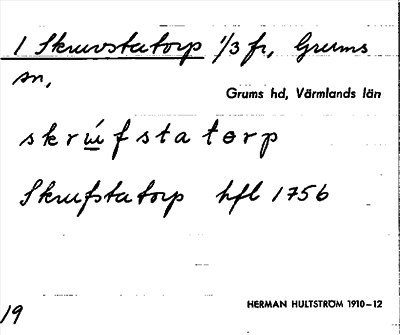 1 Skruvstatorp 1/3 fr, Grums
sn,
Grums hd, Värmlands län
skrú̲fstatɵrp
Skrufstatorp hfl 1756
HERMAN HULTSTRÖM 1910–12
19